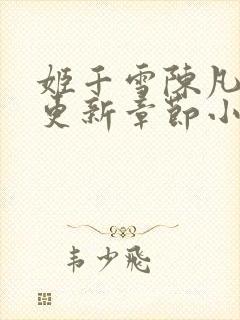 姬千雪陳凡
更新章節小
韦少飛